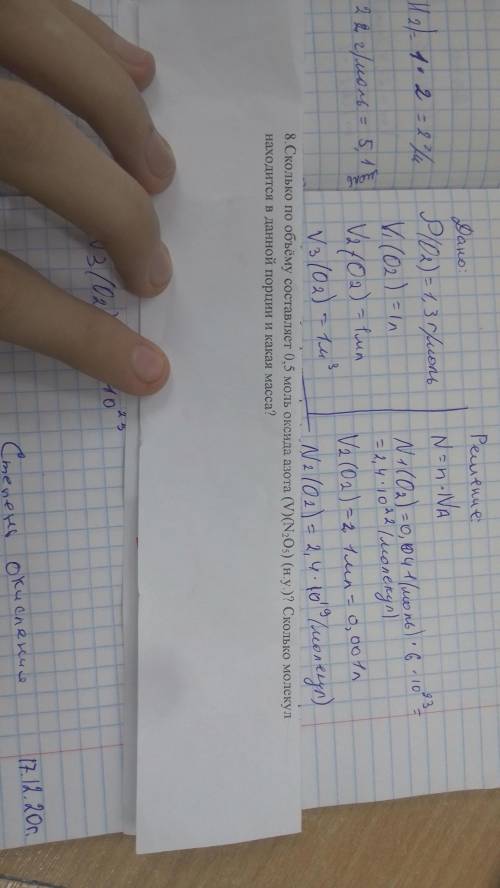 (2) = 1 · 2 = 2 г/м
22 г/моль = 5,1
Дано:
ρ(O₂) = 1,3 г/моль
V₁(O₂) = 1л
V₂(O₂) = 1мл
V₃(O₂) = 1м³
Решение:
N = n · NA
N₁(O₂) = 0,041(моль) · 6 · 10²³ =
= 2,4 · 10²² (молекул)
V₂(O₂) = 2,1мл = 0,001л
N₂(O₂) = 2,4 · 10¹⁹ (молекул)
8.Сколько по объёму составляет 0,5 моль оксида азота (V)(N₂O₅) (н.у.)? Сколько молекул
находится в данной порции и какая масса?
V₃(O₂) 10²⁵
Степень окисления 17.12.20г.